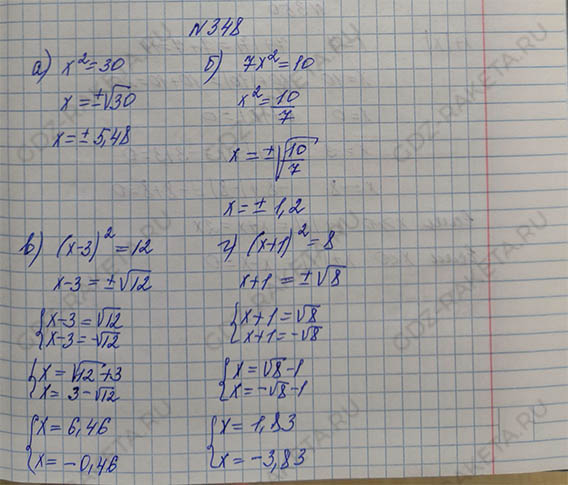 №348
а) x² = 30
x = ±√30
x = ± 5,48
б) 7x² = 10
x² = 10/7
x = ±√10/7
x = ± 1,2
в) (x-3)² = 12
x-3 = ±√12
{x-3 = √12
x-3 = -√12
{x = √12 +3
x = 3-√12
{x = 6,46
x = -0,46
г) (x+1)² = 8
x+1 = ±√8
{x+1 = √8
x+1 = -√8
{x = √8-1
x = -√8-1
{x = 1,83
x = -3,83
GDZ-RAKETA.RU